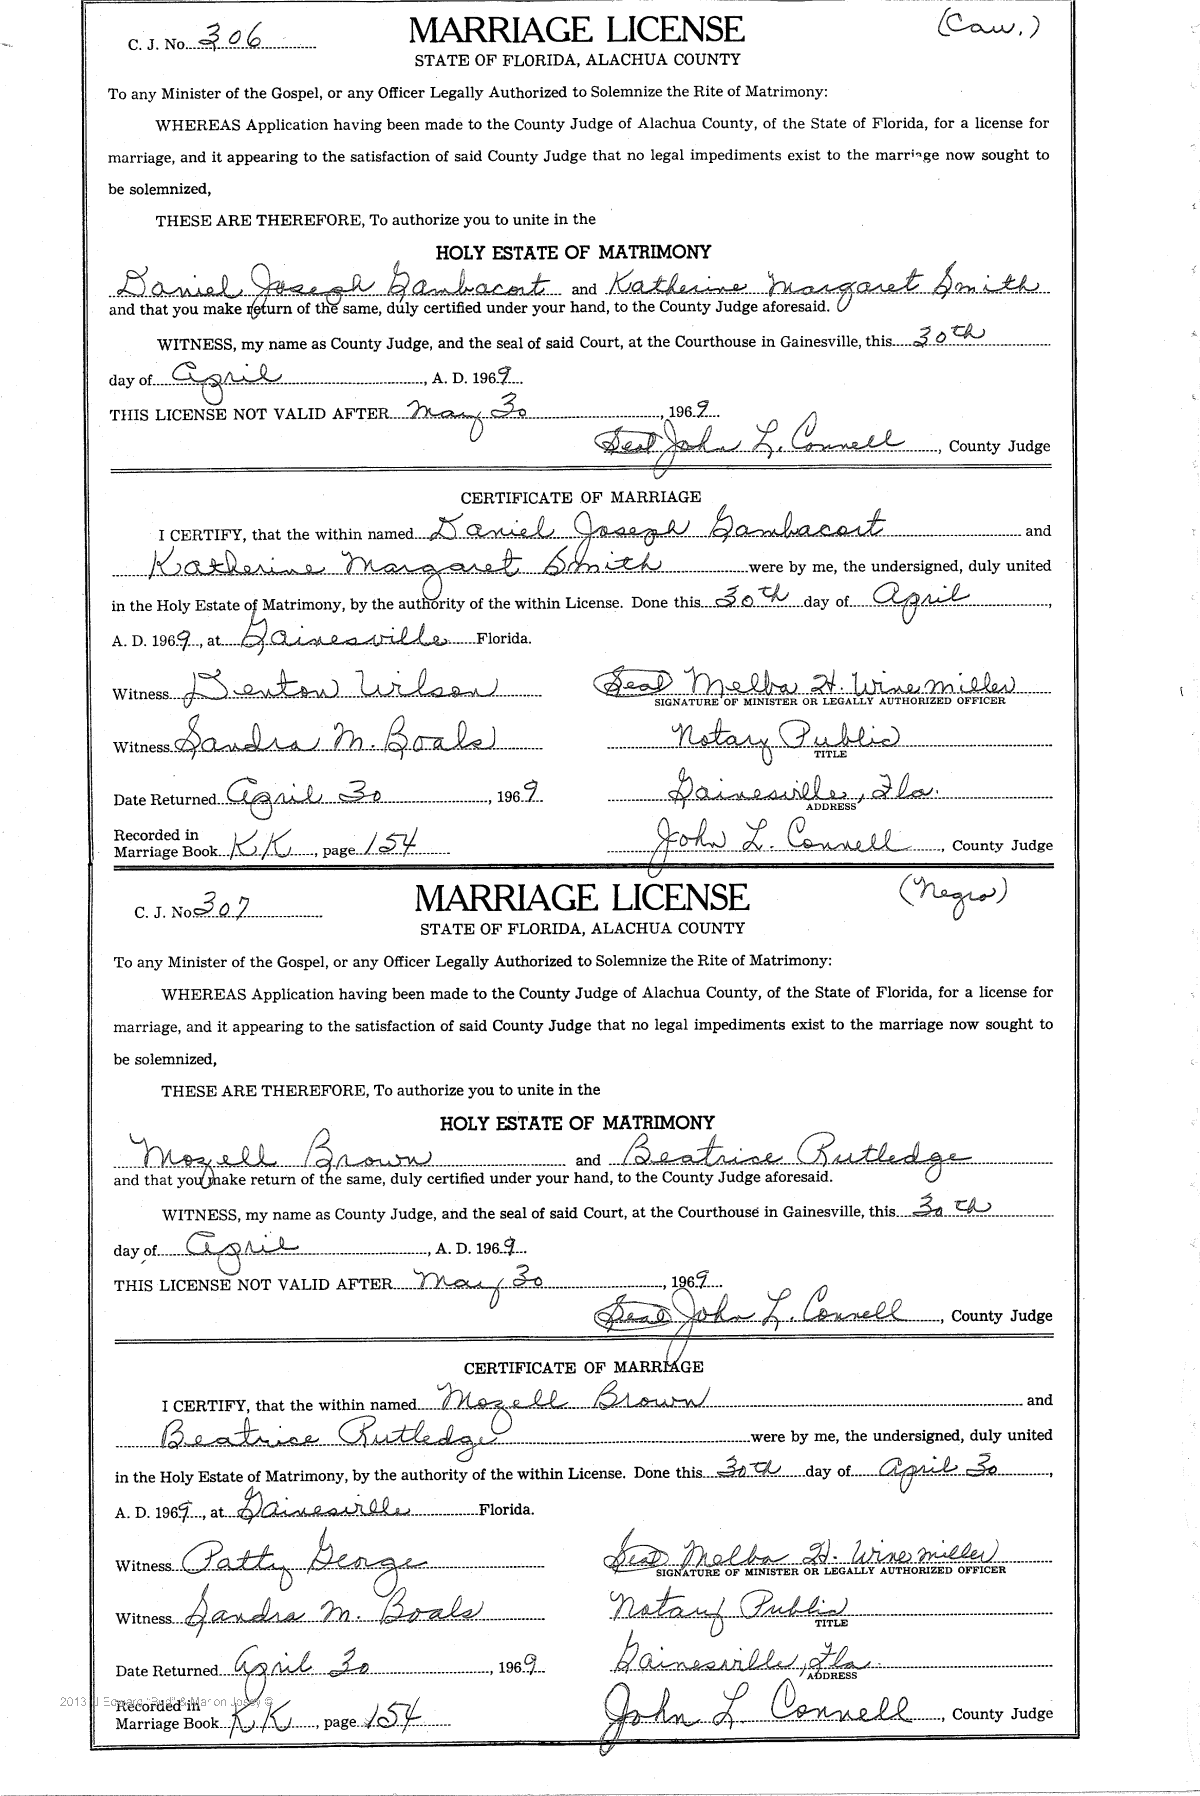 C. J. No. 306 MARRIAGE LICENSE (Caw.)
STATE OF FLORIDA, ALACHUA COUNTY
To any Minister of the Gospel, or any Officer Legally Authorized to Solemnize the Rite of Matrimony:
WHEREAS Application having been made to the County Judge of Alachua County, of the State of Florida, for a license for
marriage, and it appearing to the satisfaction of said County Judge that no legal impediments exist to the marriage now sought to
be solemnized,
THESE ARE THEREFORE, To authorize you to unite in the
HOLY ESTATE OF MATRIMONY
Daniel Joseph Gambacort and Katherine Margaret Smith
and that you make return of the same, duly certified under your hand, to the County Judge aforesaid.
WITNESS, my name as County Judge, and the seal of said Court, at the Courthouse in Gainesville, this 30th
day of April, A. D. 1969
THIS LICENSE NOT VALID AFTER May 30, 1969
Seal John L. Connell, County Judge
CERTIFICATE OF MARRIAGE
I CERTIFY, that the within named Daniel Joseph Gambacort and
Katherine Margaret Smith were by me, the undersigned, duly united
in the Holy Estate of Matrimony, by the authority of the within License. Done this 30th day of April,
A. D. 1969, at Gainesville Florida.
Witness Denton Wilson Seal Melba H. Winemiller
SIGNATURE OF MINISTER OR LEGALLY AUTHORIZED OFFICER
Witness Sandra M. Boals Notary Public
TITLE
Date Returned April 30, 1969 Gainesville, Fla.
ADDRESS
Recorded in
Marriage Book KK, page 154 John L. Connell, County Judge
C. J. No. 307 MARRIAGE LICENSE (Negro)
STATE OF FLORIDA, ALACHUA COUNTY
To any Minister of the Gospel, or any Officer Legally Authorized to Solemnize the Rite of Matrimony:
WHEREAS Application having been made to the County Judge of Alachua County, of the State of Florida, for a license for
marriage, and it appearing to the satisfaction of said County Judge that no legal impediments exist to the marriage now sought to
be solemnized,
THESE ARE THEREFORE, To authorize you to unite in the
HOLY ESTATE OF MATRIMONY
Mozell Brown and Beatrice Rutledge
and that you make return of the same, duly certified under your hand, to the County Judge aforesaid.
WITNESS, my name as County Judge, and the seal of said Court, at the Courthouse in Gainesville, this 30th
day of April, A. D. 1969
THIS LICENSE NOT VALID AFTER May 30, 1969
Seal John L. Connell, County Judge
CERTIFICATE OF MARRIAGE
I CERTIFY, that the within named Mozell Brown and
Beatrice Rutledge were by me, the undersigned, duly united
in the Holy Estate of Matrimony, by the authority of the within License. Done this 30th day of April 30,
A. D. 1969, at Gainesville Florida.
Witness Patty George Seal Melba H. Winemiller
SIGNATURE OF MINISTER OR LEGALLY AUTHORIZED OFFICER
Witness Sandra M. Boals Notary Public
TITLE
Date Returned April 30, 1969 Gainesville, Fla.
ADDRESS
2013 J Edward "Bud" & Marion Josey ©
Recorded in
Marriage Book KK, page 154 John L. Connell, County Judge